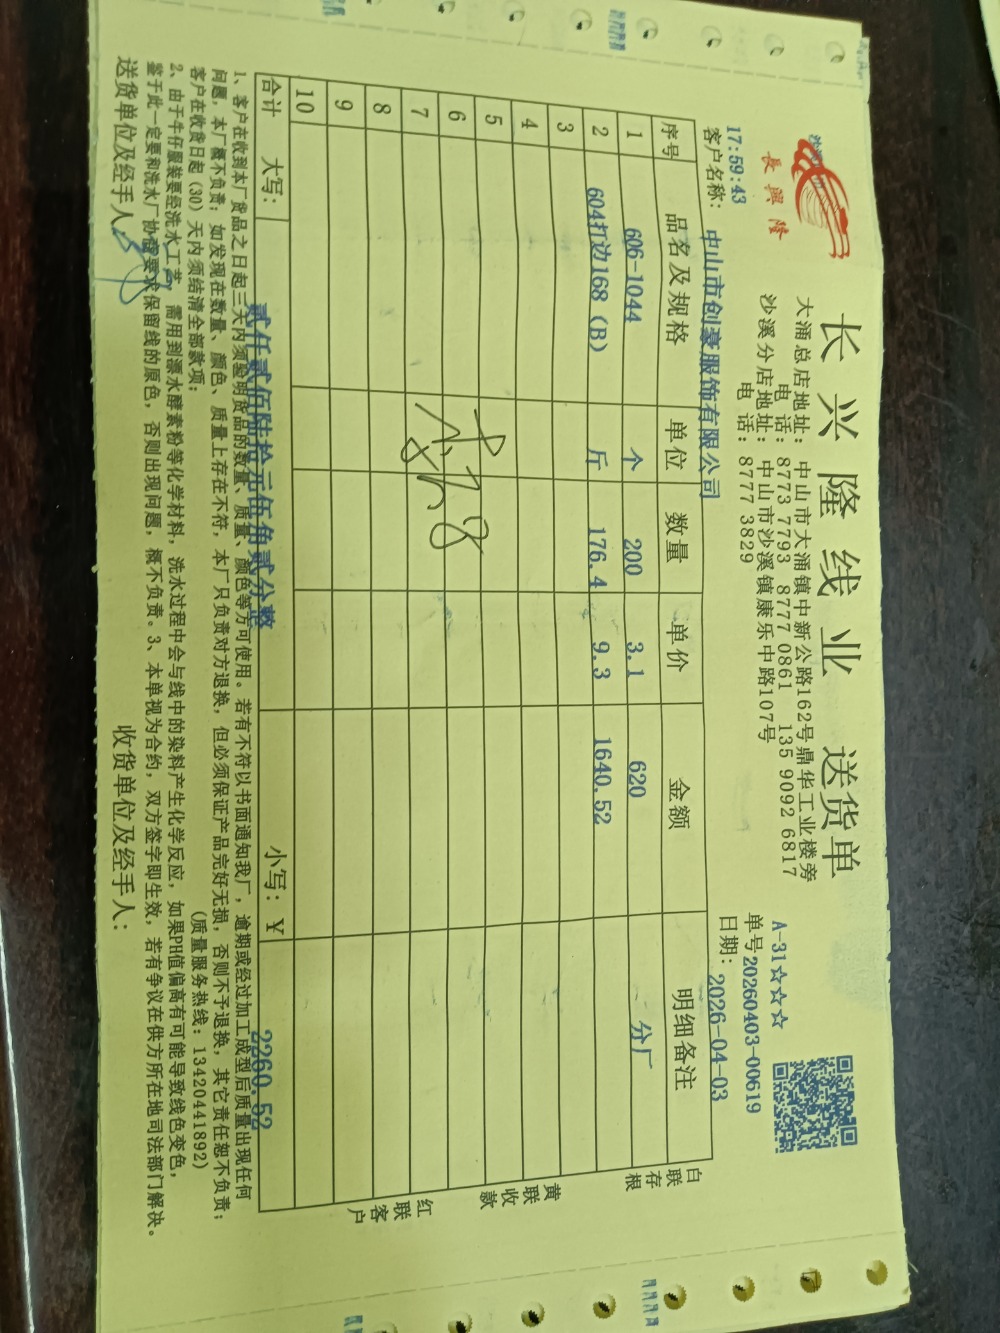 長興隆
长兴隆线业 送货单
大涌总店地址: 中山市大涌镇中新公路162号鼎华工业楼旁
电 话: 8773 7793 8777 0861 135 9092 6817
沙溪分店地址: 中山市沙溪镇康乐中路107号
电 话: 8777 3829
A-31☆☆☆
单号20260403-00619
17:59:43
客户名称: 中山市创豪服饰有限公司 日期: 2026-04-03
序号 品名及规格 单位 数量 单价 金额 明细备注
1 606-1044 个 200 3.1 620 分厂
2 604打边168 (B) 斤 176.4 9.3 1640.52
3
4
5
6
7
8
9
10
合计 大写: 贰仟贰佰陆拾元伍角贰分整 小写: ¥ 2260.52
白联存根
黄联收款
红联客户
1、客户在收到本厂货品之日起三天内须验明货品的数量、质量、颜色等方可使用。若有不符以书面通知我厂，逾期或经过加工成型后质量出现任何
问题，本厂概不负责；如发现在数量、颜色、质量上存在不符，本厂只负责对方退换，但必须保证产品完好无损，否则不予退换，其它责任恕不负责；
客户在收货日起 (30) 天内须结清全部款项； (质量服务热线: 13420441892)
2、由于牛仔服装要经洗水工艺，需用到漂水酵素粉等化学材料，洗水过程中会与线中的染料产生化学反应，如果PH值偏高有可能导致线色变色，
鉴于此一定要和洗水厂协商要求保留线的原色，否则出现问题，概不负责。3、本单视为合约，双方签字即生效，若有争议在供方所在地司法部门解决。
送货单位及经手人: 收货单位及经手人: